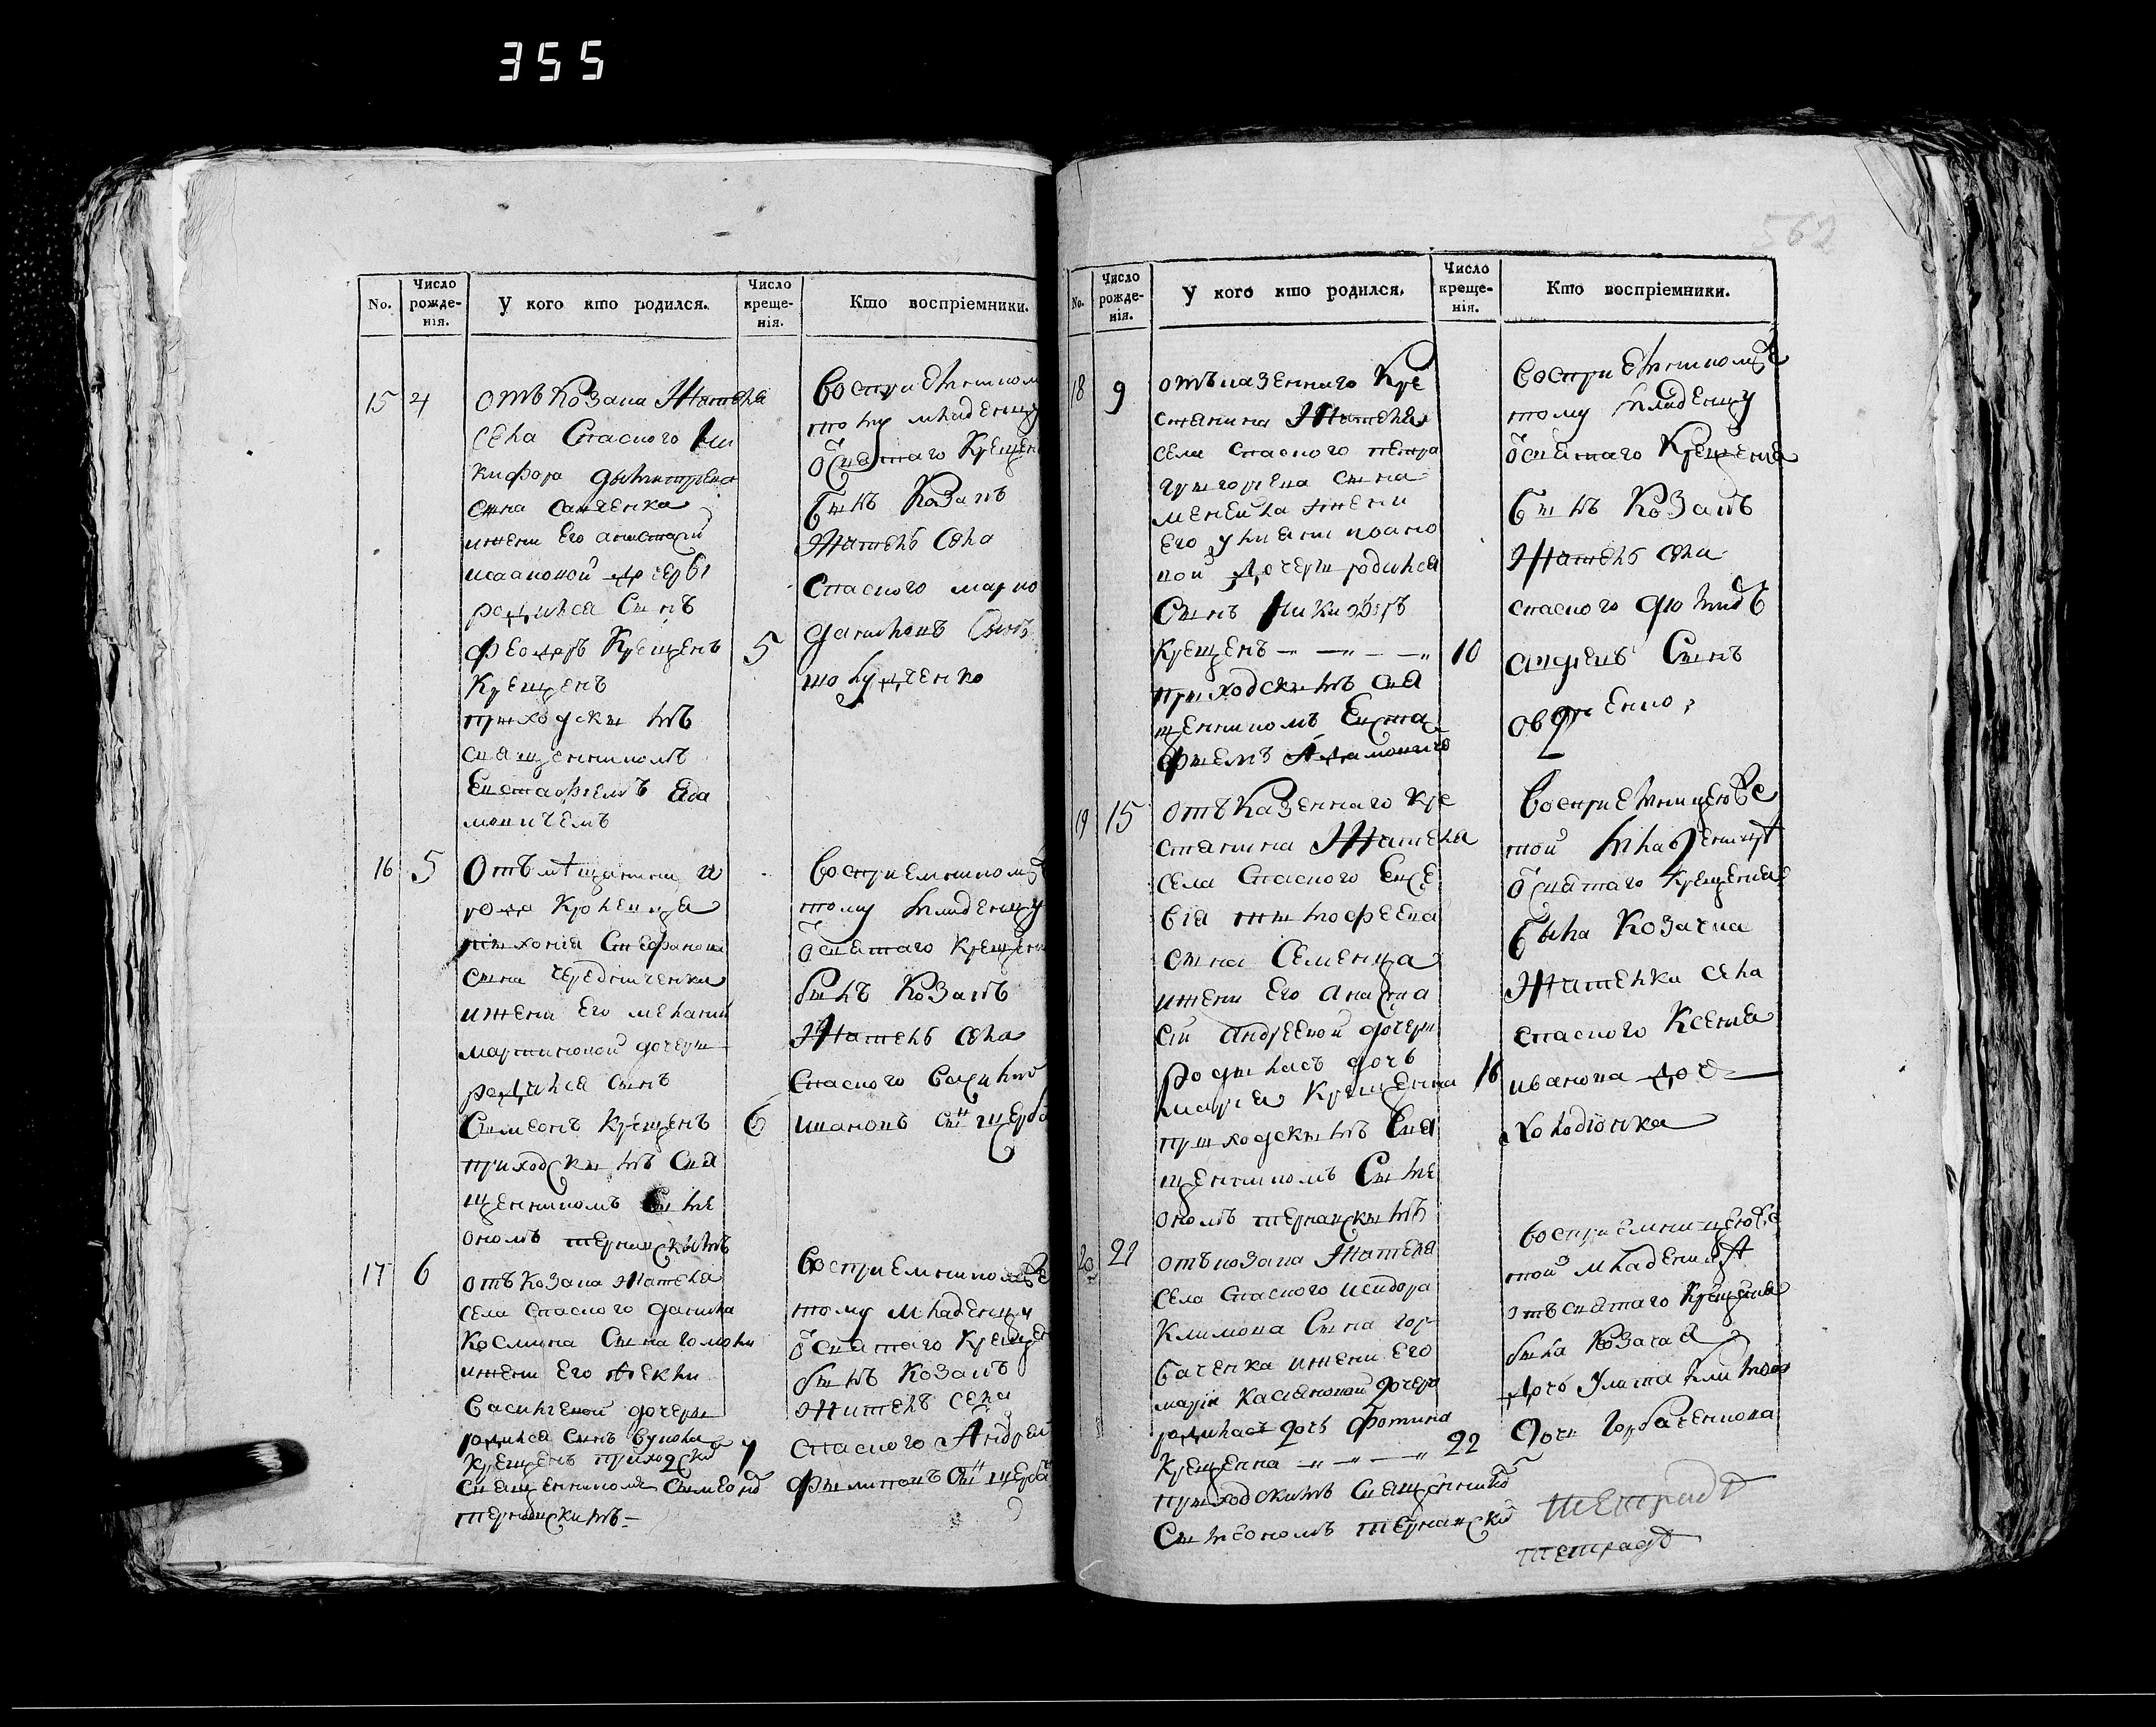 355
562
No.
Число рожде-нія.
У кого кто родился.
Число креще-нія.
Кто воспріемники.
15 4
отъ козака Жителя
села Спаского Ни
кифора дымитриева
сына
ижени Его анастасіи
исааковой дочери
родился Сынъ
феодоръ Крещенъ 5
Крещенъ
приходскимъ
священникомъ
Евстафіемъ Ада
мовичемъ
воспріемником
тому младенцу
о святаго Крещен
былъ Козакъ
Житель села
Спаского марко
даниловъ Сынъ
16 5
отъ мѣщанина и
рода Кролевца
тихонія Стефанова
сына Чередниченка
ижени Его меланіи
мартиновой дочери
родился сынъ
Симеонъ Крещенъ 6
приходскимъ Свя
щенникомъ Симе
ономъ тернавскимъ
воспріемником
тому младенцу
о святаго крещені
былъ Козакъ
Житель села
Спаского
ивановъ сынъ щерба
17 6
отъ козака жителя
села спаского данила
Космина Сына
ижени Его Феклы
василіевой дочери
родился сынъ вукола
Крещенъ приходски 7
Священникомъ Симеоно
тернавскимъ
воспріемником
тому младенцу
о святаго Крещен
былъ Козакъ
житель села
спаского Андрей
филиповъ сынъ щерба
No.
Число рожде-нія.
У кого кто родился.
Число креще-нія.
Кто воспріемники.
18 9
отъ казенного Кре
стянина Жителя
села Спаского петра
григориева сына
жени
Его
вой дочери родился
Сынъ Никифоръ
Крещенъ 10
приходскимъ свя
щенникомъ Евста
фіемъ Адамовиче
воспріемникомъ
тому младенцу
о святаго Крещенія
былъ Козакъ
Житель села
спаского
андреевъ Сынъ
19 15
отъ Казенного кре
стянина Жителя
села Спаского Евсе
вія тимофеева
сына Семенца
ижени Его анаста
сіи андреевой дочери
родилась дочь
марія Крещенна 16
приходскимъ Свя
щенникомъ Симе
ономъ тернавскимъ
воспріемницею
той младеницѣ
о святаго крещенія
была Козачка
Жителька села
спаского Ксенія
иванова доч
20 21
отъ козака Жителя
села Спаского исидора
Климова Сына гор
баченка ижени Его
маріи Касіановой дочери
родилась дочь Фотина
Крещенна 22
приходскимъ Священнико
Симеономъ тернавски
воспріемницею
той младеницѣ
отъ святаго Крещенія
была Козачая
дочь Улита Климова
дочь Горбаченкова
тетрадъ
тетрадъ